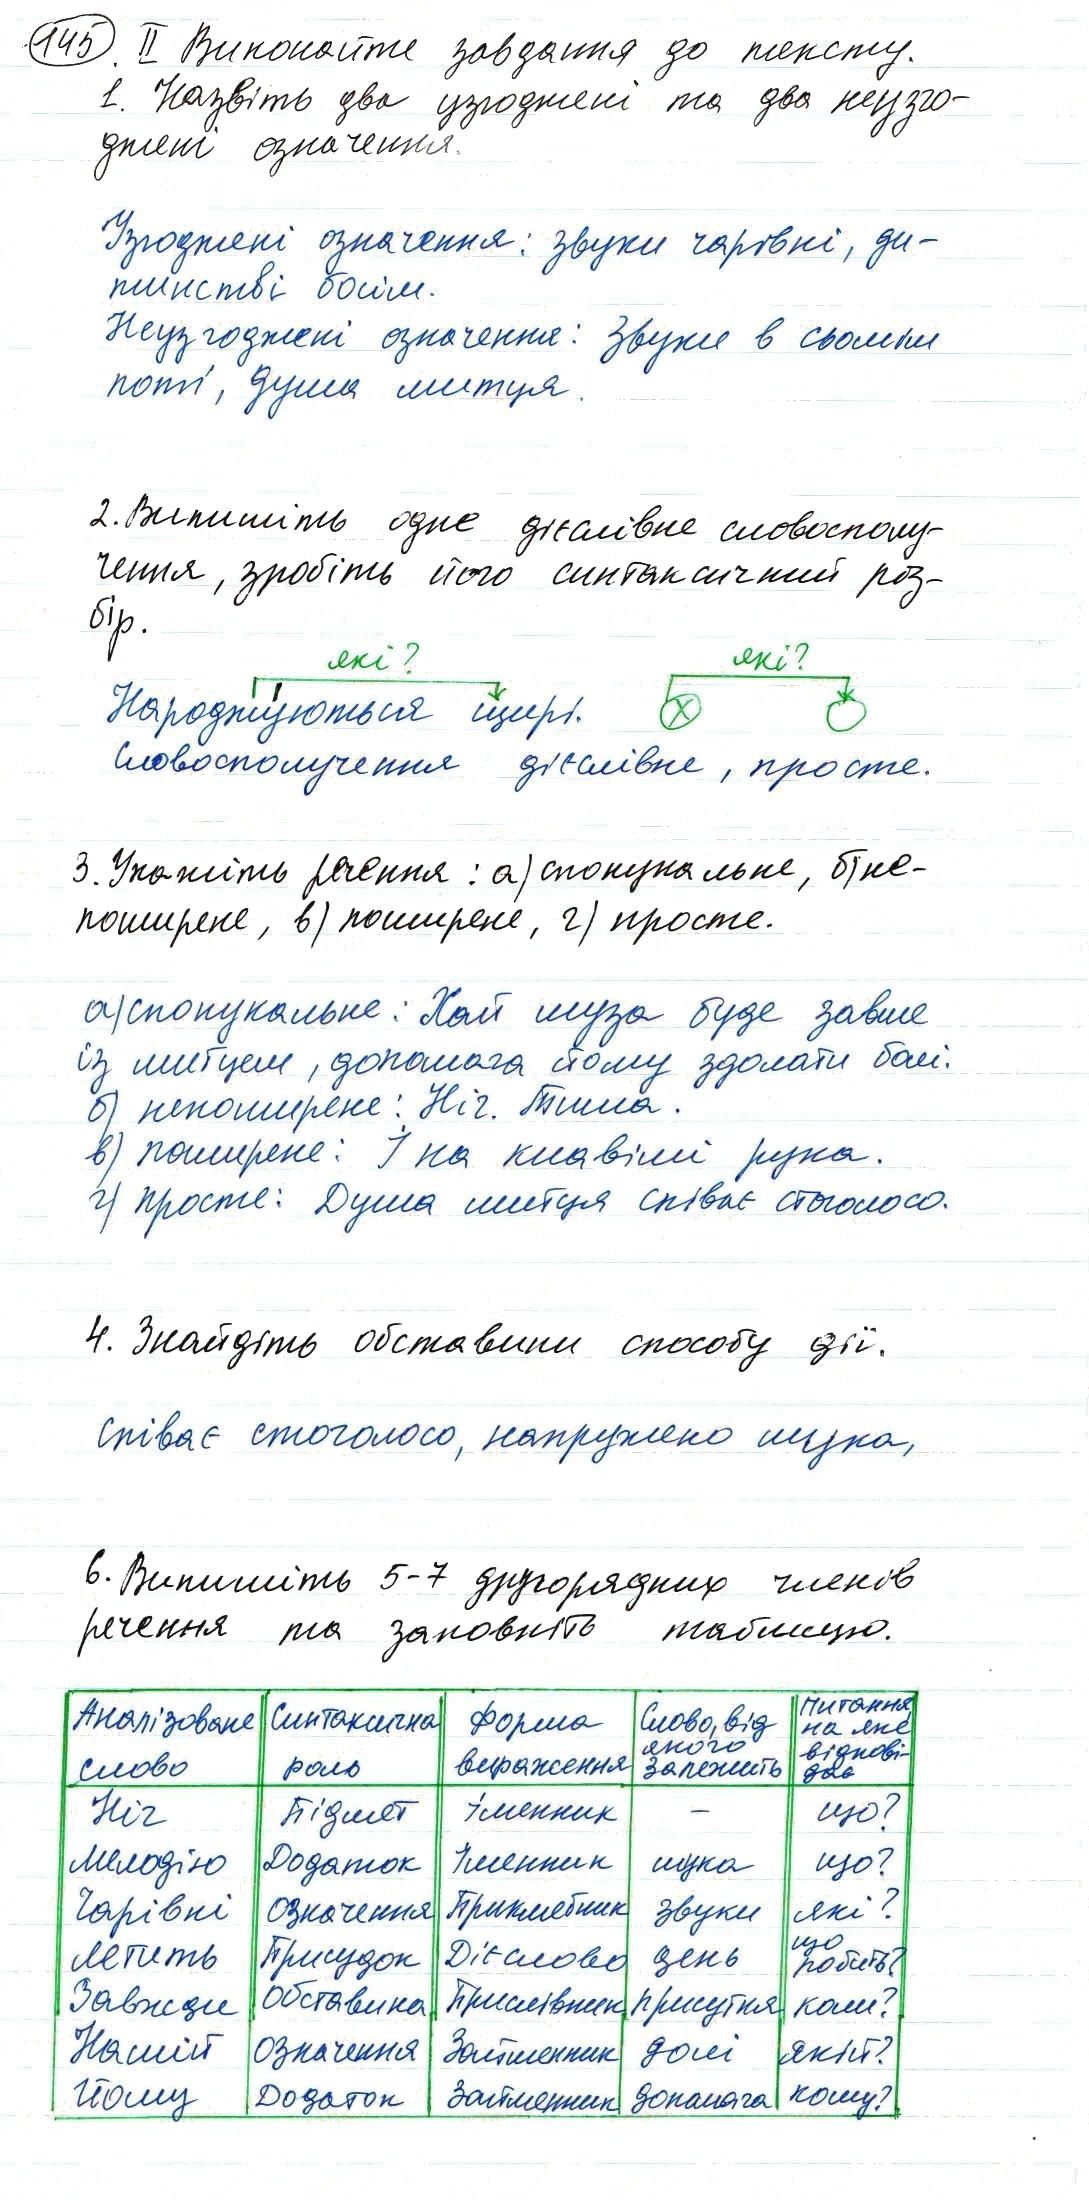 145. II Виконайте завдання до тексту.
1. Назвіть два узгоджені та два неузго-
джені означення.
Узгоджені означення: звуки чарівні, ди-
тинстві босім.
Неузгоджені означення: Звуки в сьомім
поті, душа митця.
2. Випишіть одне дієслівне словосполу-
чення, зробіть його синтаксичний роз-
бір.
які? які?
Народжуються щирі.
Словосполучення дієслівне, просте.
3. Укажіть речення: а) спонукальне, б) не-
поширене, в) поширене, г) просте.
а) спонукальне: Хай муза буде завше
із митцем, допомага йому здолати болі.
б) непоширене: Ніч. Тиша.
в) поширене: І на клавіші рука.
г) просте: Душа митця співає стоголосо.
4. Знайдіть обставини способу дії.
Співає стоголосо, напружено шука,
6. Випишіть 5-7 другорядних членів
речення та заповніть таблицю.
Аналізоване слово Синтаксична роль Форма вираження Слово, від якого залежить Питання, на яке відповідає
Ніч Підмет Іменник - що?
Мелодію Додаток Іменник шука що?
Чарівні Означення Прикметник звуки які?
Летить Присудок Дієслово день що робить?
Завжди Обставина Прислівник присутня коли?
Нашій Означення Займенник долі якій?
Йому Додаток Займенник допомага кому?